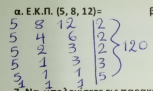 α. Ε.Κ.Π. (5, 8, 12)=
5 8 12 | 2
5 4 6 | 2
5 2 3 | 2 } 120
5 1 3 | 3
5 1 1 | 5
1 1 1